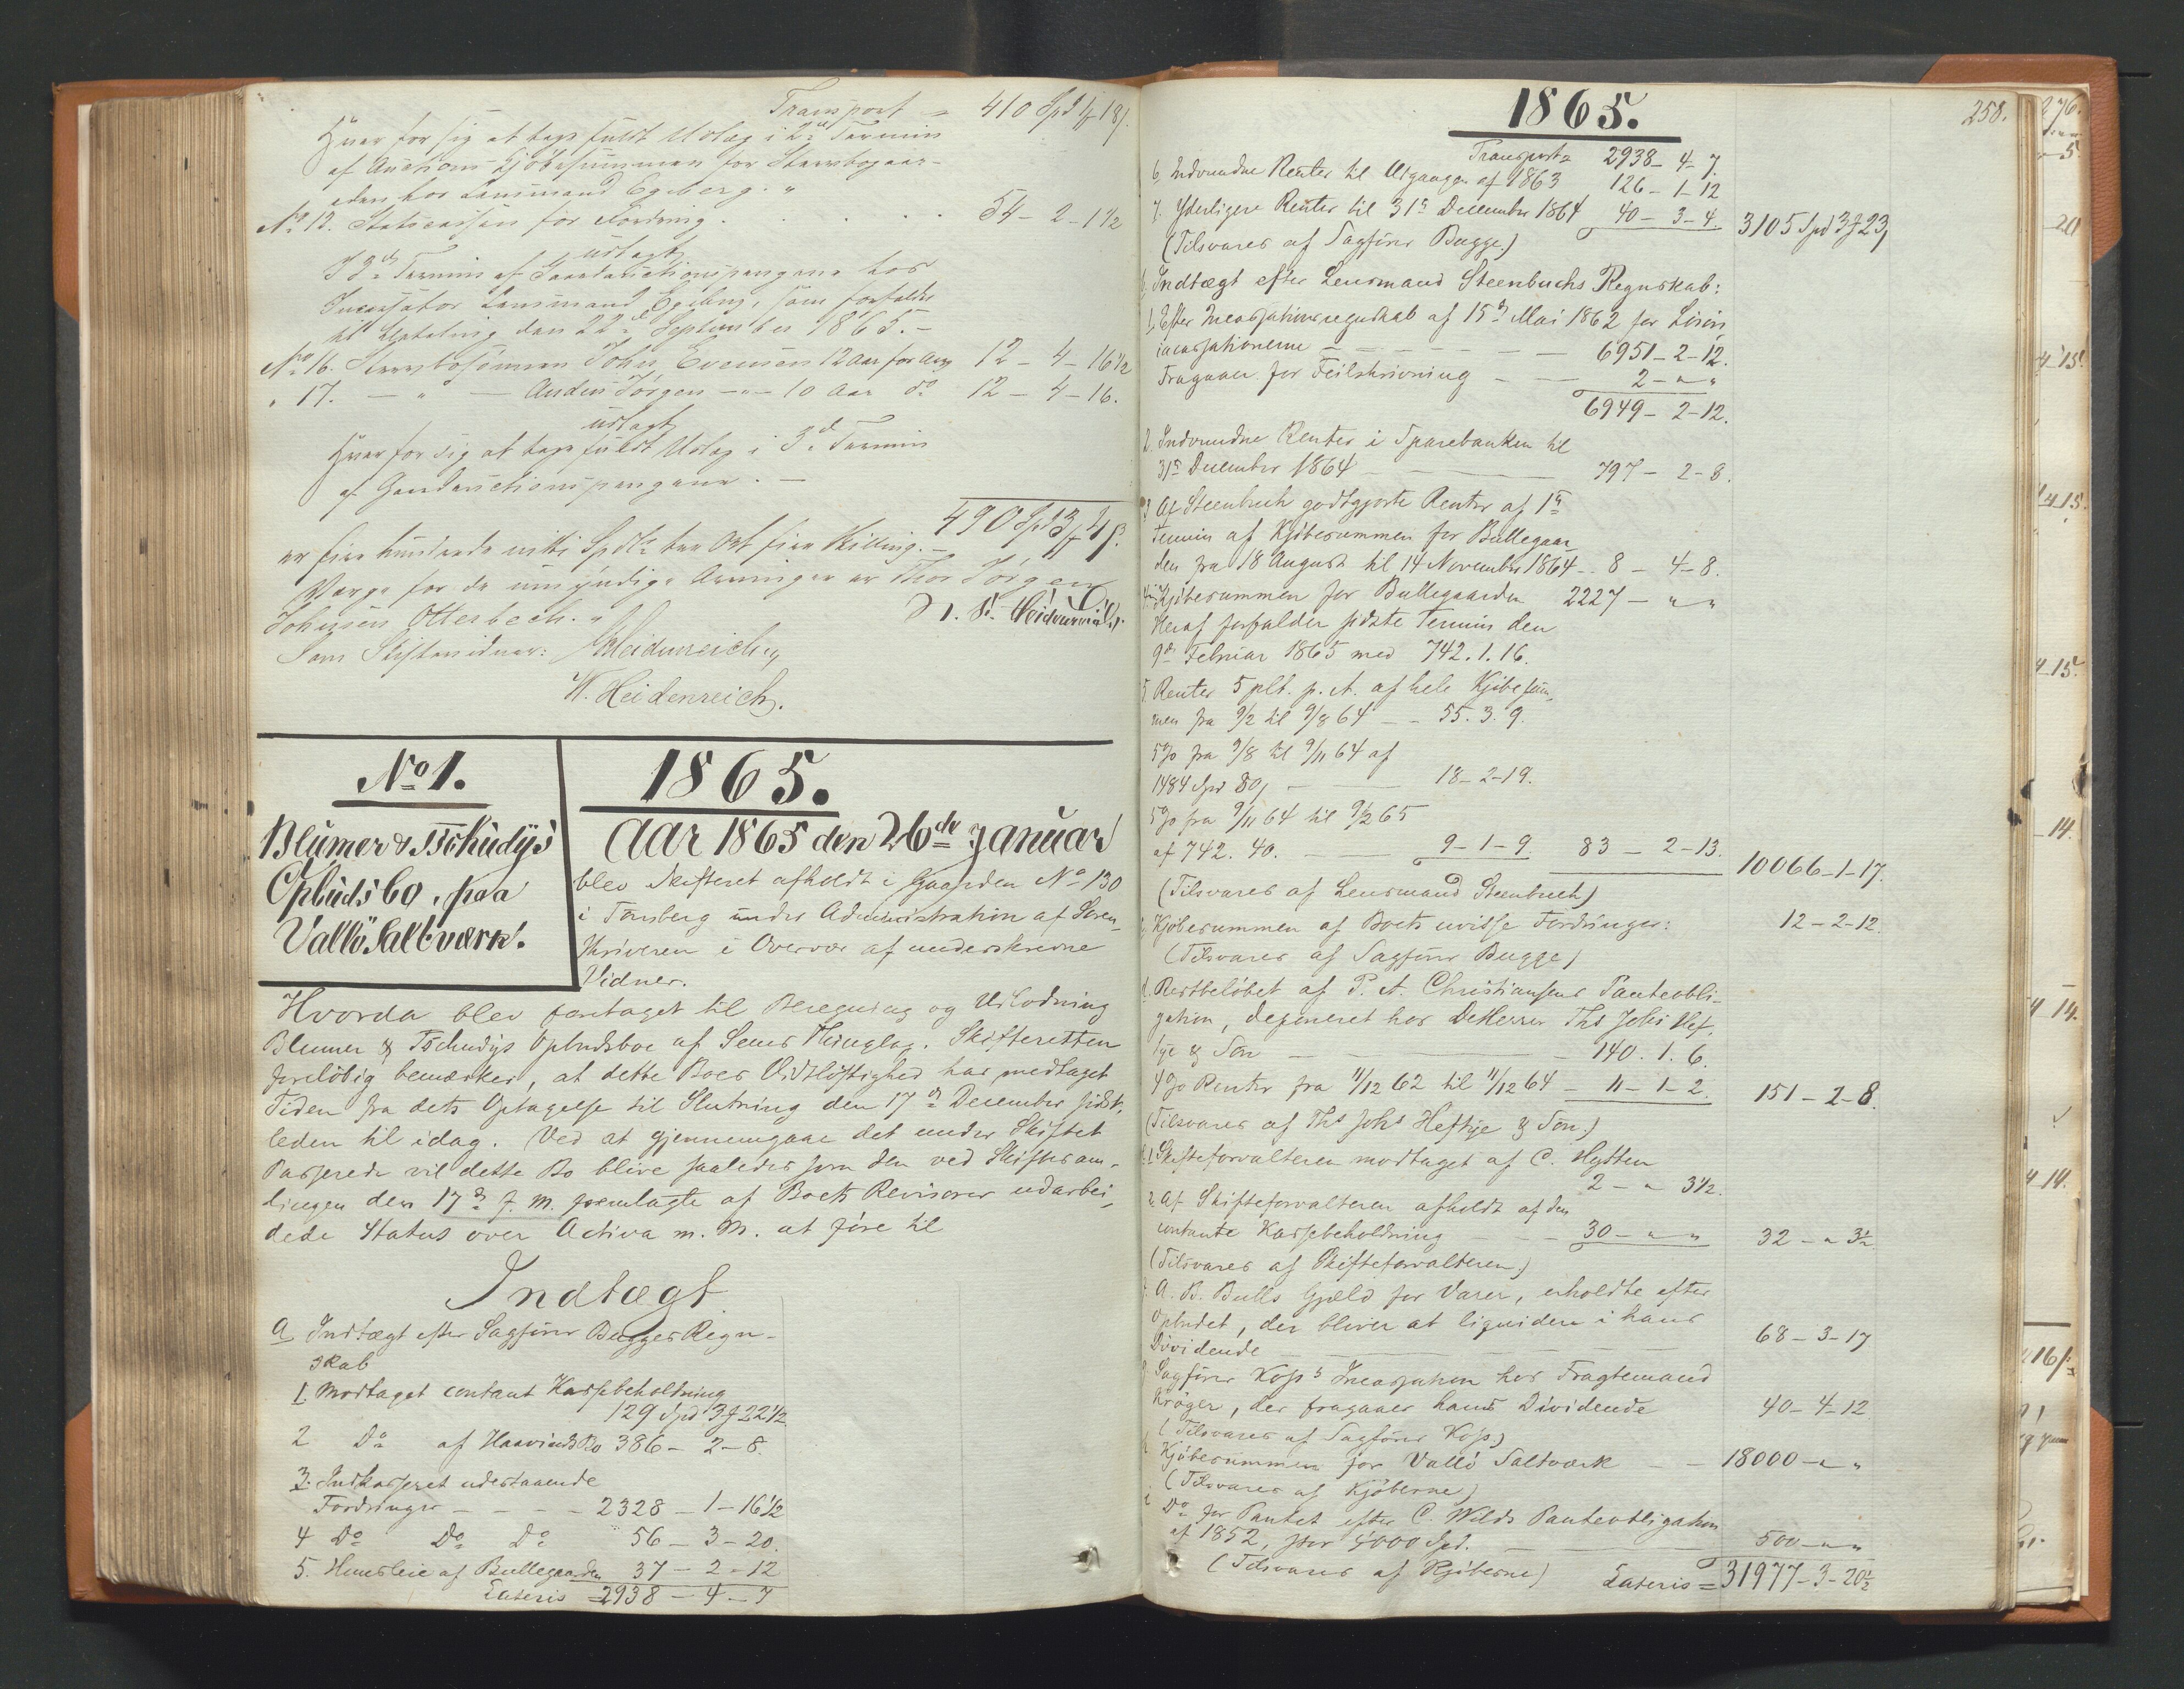 Transport = 410 Spd 1 f 18 s.
Hver for sig at tage fuldt Udlæg i 2den Termin
af Auctions Kjöbesummen for Stervbogaar-
den hos Lensmand Egeberg. "
No 13. Statscassen for Fordring . . . . . 54 - 2 - 1 1/2
udlagt
I 3die Termin af Gaardauctionspengene hos
Incassator Lensmand Egeberg, som forfalder
til Udbetaling den 22de September 1865. -
No 16. Stervbosönnen Johan Evensen 12 Aar for Arv 12 - 4 - 16 1/2
" 17. - " - Anders Jörgen -"- 10 Aar do 12 - 4 - 16.
udlagt
Hver for sig at tage fuldt Udlæg i 3die Termin
af Gaardauctionspengene. -
490 Spd 3 f 4 s.
er fire hundrede nitti Spdlr tre Ort fire Skilling. -
Værge for de umyndige Arvinger er Thor Jörgen
Johnsen Otterbech. "
Som Skiftevidner: Heidenreich
W. Heidenreich.
No 1.
Blumer & Tschudys
Opbudsbo, paa
Vallö Saltværk.
1865.
Aar 1865 den 26de Januar
blev Skifteret afholdt i Gaarden No 130
i Tønsberg under Administration af Soren-
skriveren i Overvær af underskrevne
Vidner.
Hvorda blev foretaget til Beregning og Udlodning
Blumer & Tschudys Opbudsboe af Sems Thinglag. Skifteretten
foreløbig bemærker, at dette Boes Vidtløftighed har medtaget
Tiden fra dets Optagelse til Slutning den 17de December sidst-
leden til idag. Ved at gjennemgaae det under Skiftet
Passerede vil dette Bo blive saaledes som den ved Skiftesam-
lingen den 17de f. M. fremlagte af Boets Revisorer udarbei-
dede Status over Activa m. M. at føre til
Indtægt.
a Indtægt efter Sagförer Bugges Regn-
skab
1. Modtaget contant Kassebeholdning
129 Spd 3 f 22 1/2
2 Do af Haavinds Bo 386 - 2 - 8.
3. Indkasseret udestaaende
Fordringer - - - - 2328 - 1 - 16 1/2
4 Do Do Do 56 - 3 - 20.
5. Huusleie af Bullegaarden 37 - 2 - 12
Lateris = 2938 - 4 - 7
1865.
258.
Transport = 2938 - 4 - 7.
6, Indvundne Renter til Udgangen af 1863 126 - 1 - 12
7. Yderligere Renter til 31te December 1864 40 - 3 - 4. 3105 Spd 3 f 23,
(Tilsvares af Sagförer Bugge.)
b, Indtægt efter Lensmand Steenbuchs Regnskab:
1, Efter Incassationsregnskab af 15de Mai 1862 for Lösöre
incassationerne - - - - - - 6951 - 2 - 12.
Fragaaer for Feilskrivning - - 2 - " "
6949 - 2 - 12.
2. Indvundne Renter i Sparebanken til
31te December 1864 - - - 797 - 2 - 8.
3 Af Steenbuch godtgjorte Renter af 1te
Termin af Kjöbesummen for Bullegaar-
den fra 18 August til 14 November 1864 - 8 - 4 - 8.
4. Kjöbesummen for Bullegaarden 2227 - " "
Heraf forfalder sidste Termin den
9de Februar 1865 med 742. 1. 16.
5. Renter 5 pCt. p. A. af hele Kjöbesum-
men fra 9/2 til 9/8 64 - - 55. 3. 9.
5% fra 9/8 til 9/11 64 af
1484 Spd 80, - - 18 - 2 - 19.
5% fra 9/11 64 til 9/2 65
af 742. 40. - - 9 - 1 - 9 83 - 2 - 13. 10066 - 1 - 17.
(Tilsvares af Lensmand Steenbuch)
c, Kjöbesummen af Boets uvisse Fordringer: 12 - 2 - 12.
(Tilsvares af Sagförer Bugge)
d. Restbelöbet af P. A. Christiansens Panteobli-
gation, deponeret hos DeHerrer Ths Johs Hef-
tye & Sön - - - 140. 1. 6.
4% Renter fra 11/12 62 til 11/12 64 - 11 - 1 - 2. 151 - 2 - 8.
(Tilsvares af Ths Johs Heftye & Sön.)
e, 1, Skifteforvalteren modtaget af C. Hytten
2 - " 3 1/2.
2. Af Skifteforvalteren afholdt af den
contante Kassebeholdning - - - 30 - " " 32 - " 3 1/2
(Tilsvares af Skifteforvalteren.)
f. A. B. Bulls Gjæld for Varer, erholdte efter
Opbudet, der bliver at liqvidere i hans
Dividende - - - - 68 - 3 - 17
g Sagförer Kos's Incassation hos Fragtemand
Kröger, der fragaaer hans Dividende 40 - 4 - 12
(Tilsvares af Sagförer Kos.)
h Kjöbesummen for Vallö Saltværk - - 18000 - " "
(Tilsvares af Kjöberne)
i Do for Pantet efter C. Wilds Panteobligation
af 1852, stor 4000 Spd. - - - 500 - " "
(Tilsvares af Kjöberne) Lateris = 31977 - 3 - 20 1/2